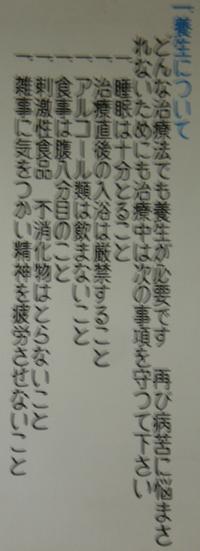 一.養生について
どんな治療法でも養生が必要です 再び病苦に悩まさ
れないためにも治療中は次の事項を守つて下さい
一.睡眠は十分とること
一.治療直後の入浴は厳禁すること
一.アルコール類は飲まないこと
一.食事は腹八分目のこと
一.刺激性食品 不消化物はとらないこと
一.雑事に気をつかい精神を疲労させないこと